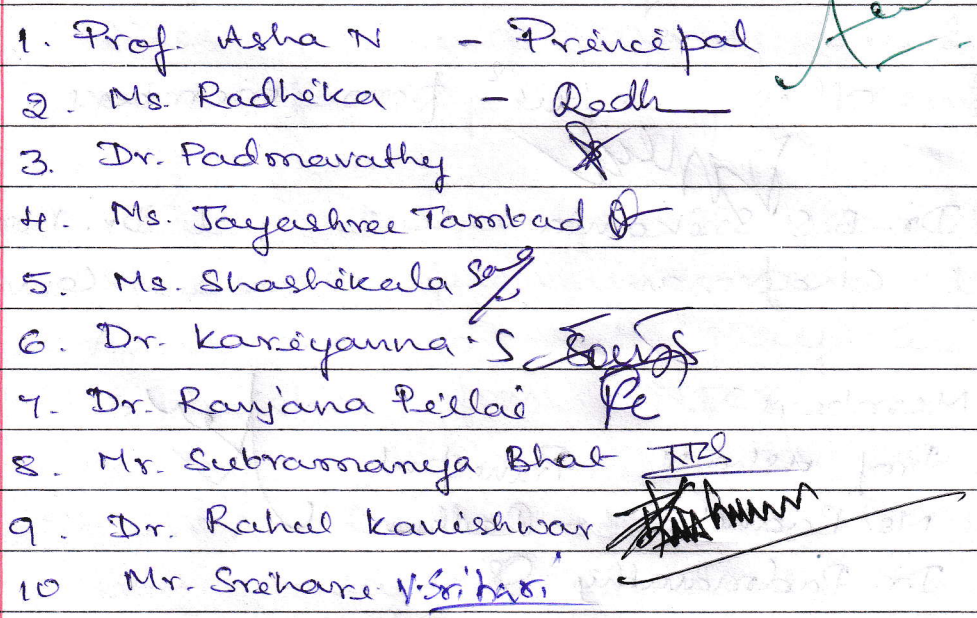 1. Prof. Asha N - Principal
2. Ms. Radhika - Radh
3. Dr. Padmavathy
4. Ms. Jayashree Tambad
5. Ms. Shashikala
6. Dr. Kariyanna. S
7. Dr. Ranjana Pillai
8. Mr. Subramanya Bhat
9. Dr. Rahul Kaveshwar
10 Mr. Srihari V. Srihari